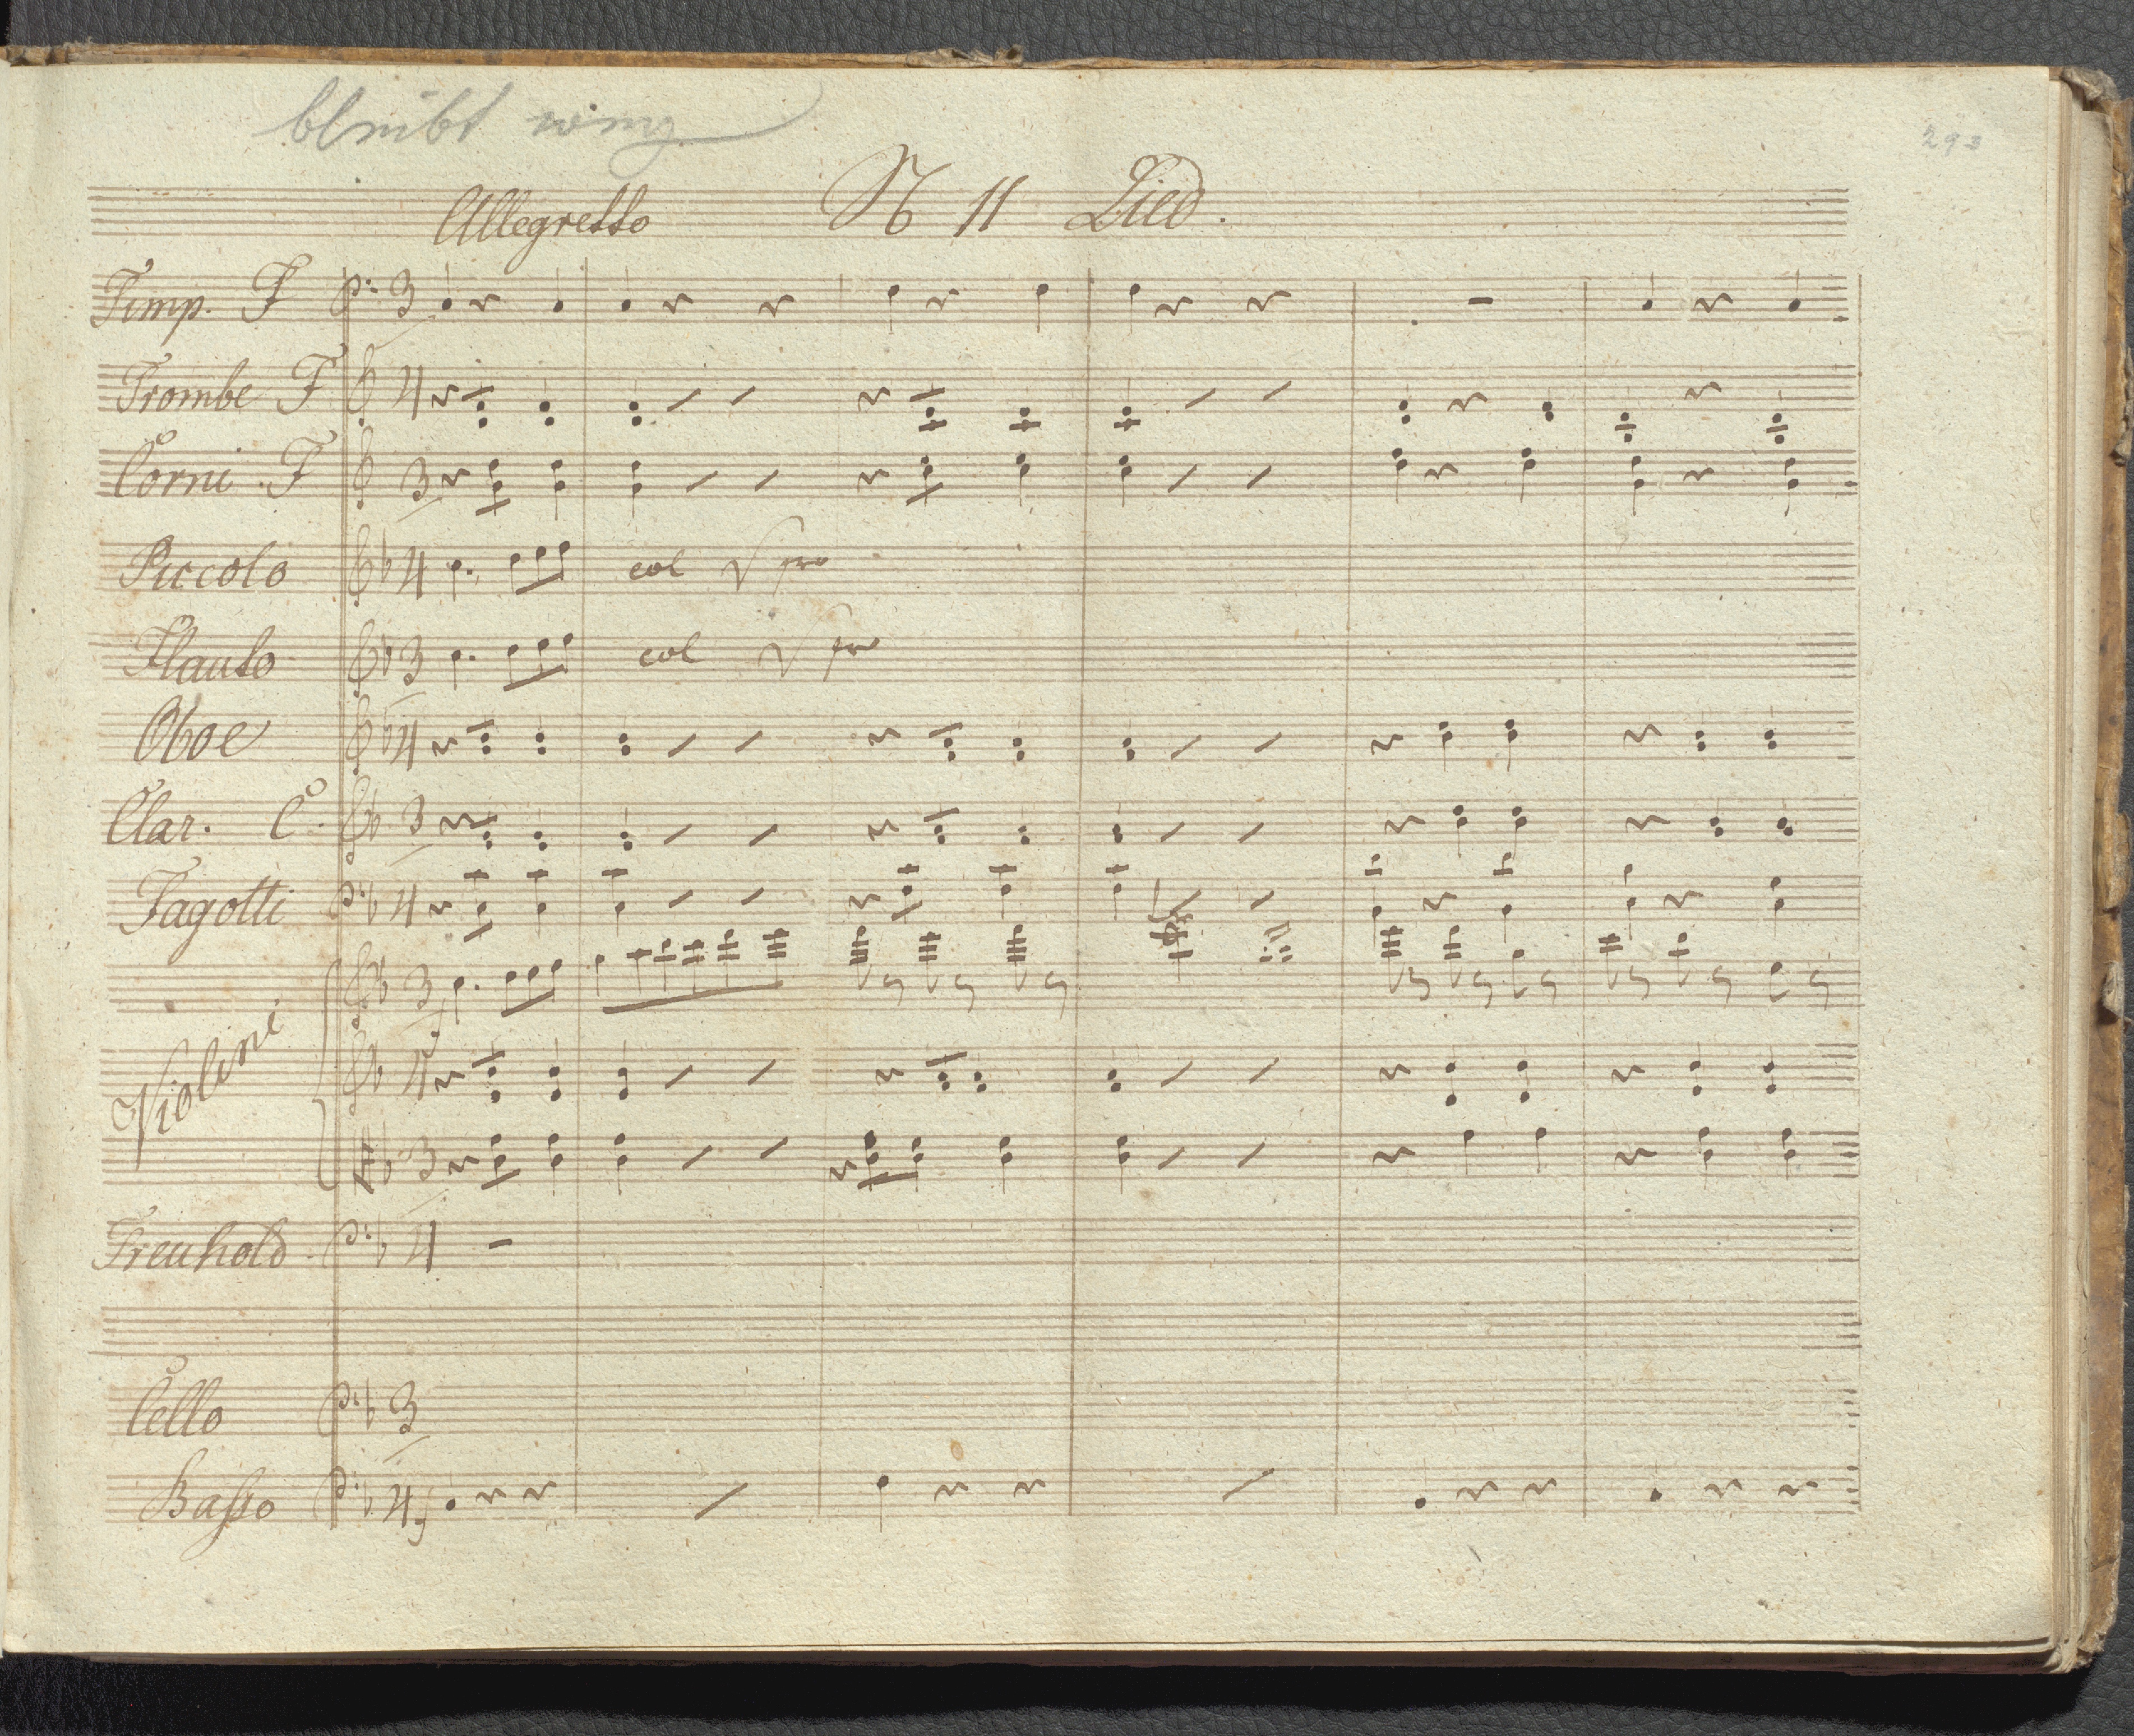 bleibt weg
293
Allegretto N 11 Lied.
Timp. F 3
Trombe F 4
Corni F 3
Piccolo 4 col V pmo
Flauto 3 col V pmo
Oboe 4
Clar. C. 3
Fagotti 4
3
Violini 4
3
Treuhold. 4
Cello 3
Basso 4